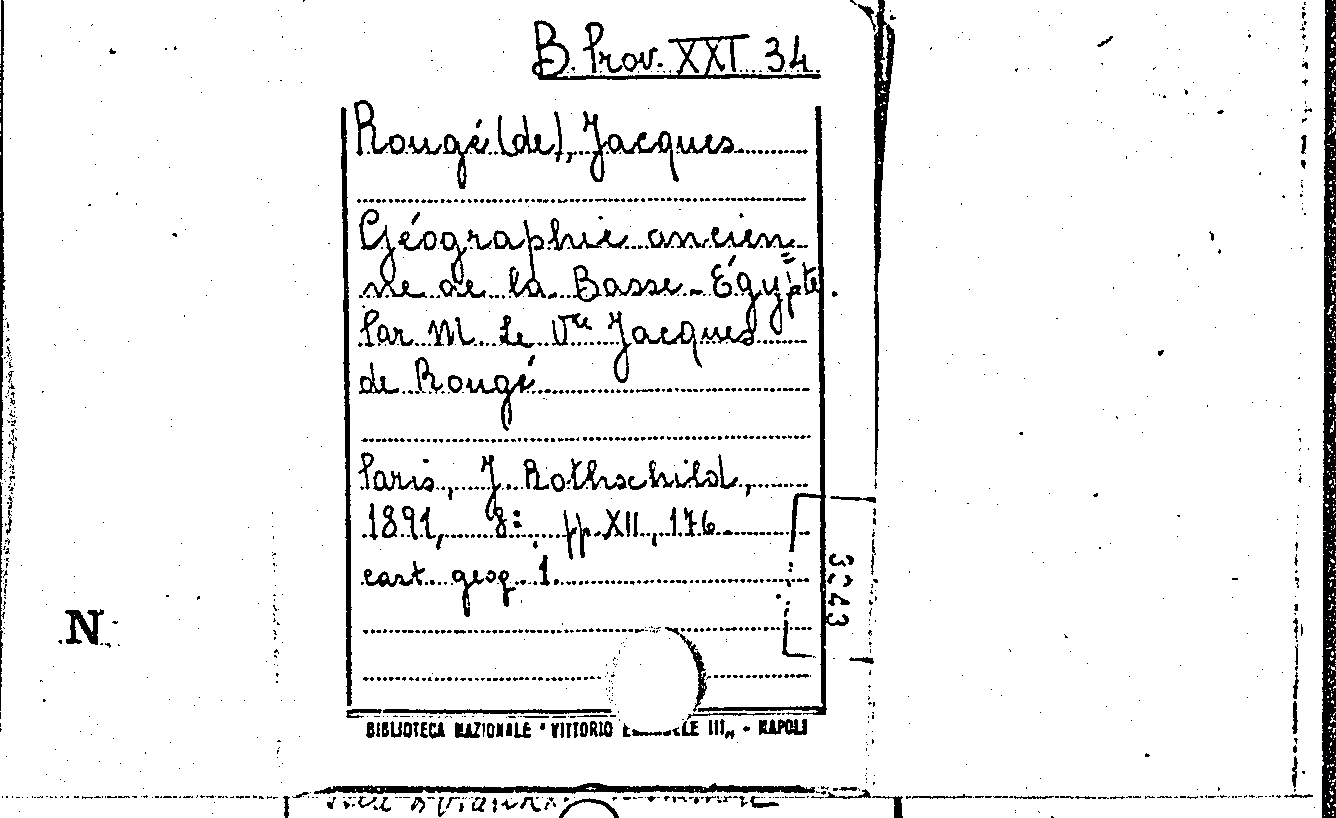 B. Prov. XXI 34
Rougé (de), Jacques
Géographie ancien=
ne de la Basse-Égypte.
Par M. Le Vte Jacques
de Rougé
Paris, J. Rothschild,
1891, 8:, pp. XII, 176.
cart. geog. 1.
3243
N
BIBLIOTECA NAZIONALE "VITTORIO III„ - NAPOLI